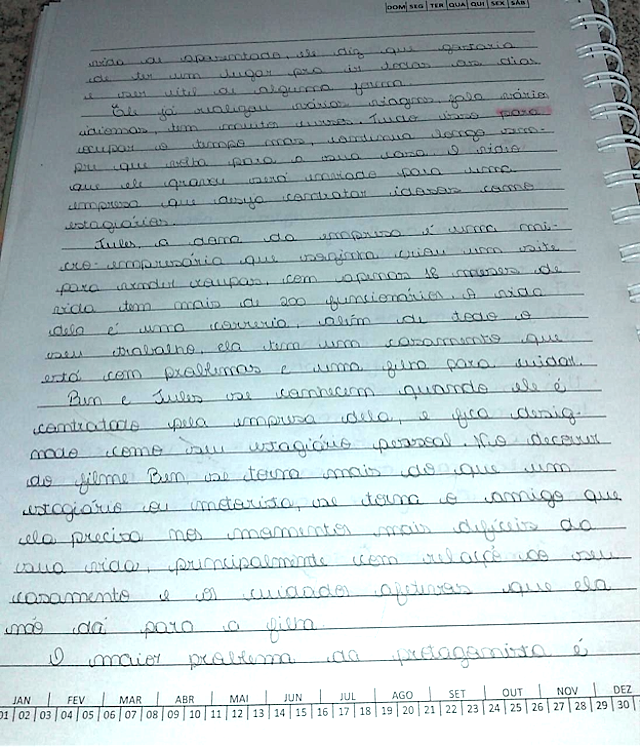 DOM SEG TER QUA QUI SEX SÁB
vida de aposentado, ele diz que gostaria
de ter um lugar pra ir todos os dias
e ser útil de alguma forma.
Ele já realizou várias viagens, fala vários
idiomas, tem muitos cursos. Tudo isso para
ocupar o tempo mas, continua longo sem-
pre que volta para a sua casa. O vídeo
que ele gravou será enviado para uma
empresa que deseja contratar idosos como
estagiários.
Jules, a dona da empresa é uma mi-
cro-empresária que sozinha criou um site
para vender roupas, com apenas 18 meses de
vida tem mais de 200 funcionários. A vida
dela é uma correria, além de todo o
seu trabalho, ela tem um casamento que
está com problemas e uma filha para cuidar.
Ben e Jules se conhecem quando ele é
contratado pela empresa dela, e fica desig-
nado como seu estagiário pessoal. No decorrer
do filme Ben, se torna mais do que um
estagiário ou motorista, se torna o amigo que
ela precisa nos momentos mais difíceis da
sua vida, principalmente com relação ao seu
casamento e os cuidados afetivos que ela
não dá para a filha
O maior problema da protagonista é
JAN FEV MAR ABR MAI JUN JUL AGO SET OUT NOV DEZ
01 02 03 04 05 06 07 08 09 10 11 12 13 14 15 16 17 18 19 20 21 22 23 24 25 26 27 28 29 30